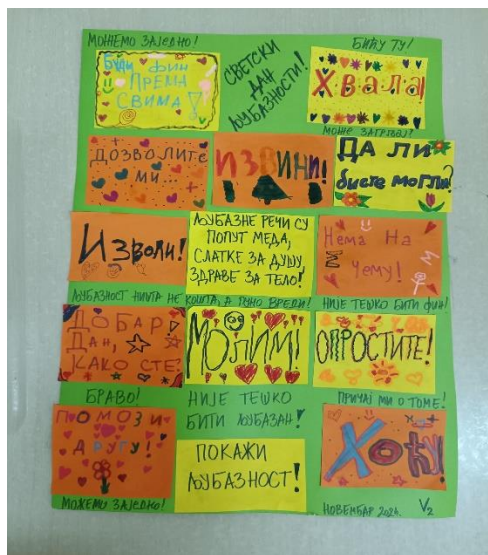 МОЖЕМО ЗАЈЕДНО!
Буди фин
ПРЕМА
СВИМА!
СВЕТСКИ
ДАН
ЉУБАЗНОСТИ!
БИЋУ ТУ!
Хвала
МОЖЕ ЗАГРЉАЈ?
ДОЗВОЛИТЕ
МИ...
ИЗВИНИ!
ДА ЛИ
бисте могли?
Изволи!
ЉУБАЗНЕ РЕЧИ СУ
ПОПУТ МЕДА,
СЛАТКЕ ЗА ДУШУ,
ЗДРАВЕ ЗА ТЕЛО!
Нема На
Чему!
ЉУБАЗНОСТ НИШТА НЕ КОШТА, А ПУНО ВРЕДИ!
НИЈЕ ТЕШКО БИТИ ФИН!
ДОБАР
ДАН,
КАКО СТЕ?
МОЛИМ!
ОПРОСТИТЕ!
БРАВО!
НИЈЕ ТЕШКО
БИТИ ЉУБАЗАН!
ПРИЧАЈ МИ О ТОМЕ!
ПОМОЗИ
ДРУГУ!
ПОКАЖИ
ЉУБАЗНОСТ!
Хоћу
МОЖЕМО ЗАЈЕДНО!
НОВЕМБАР 2024.
V2